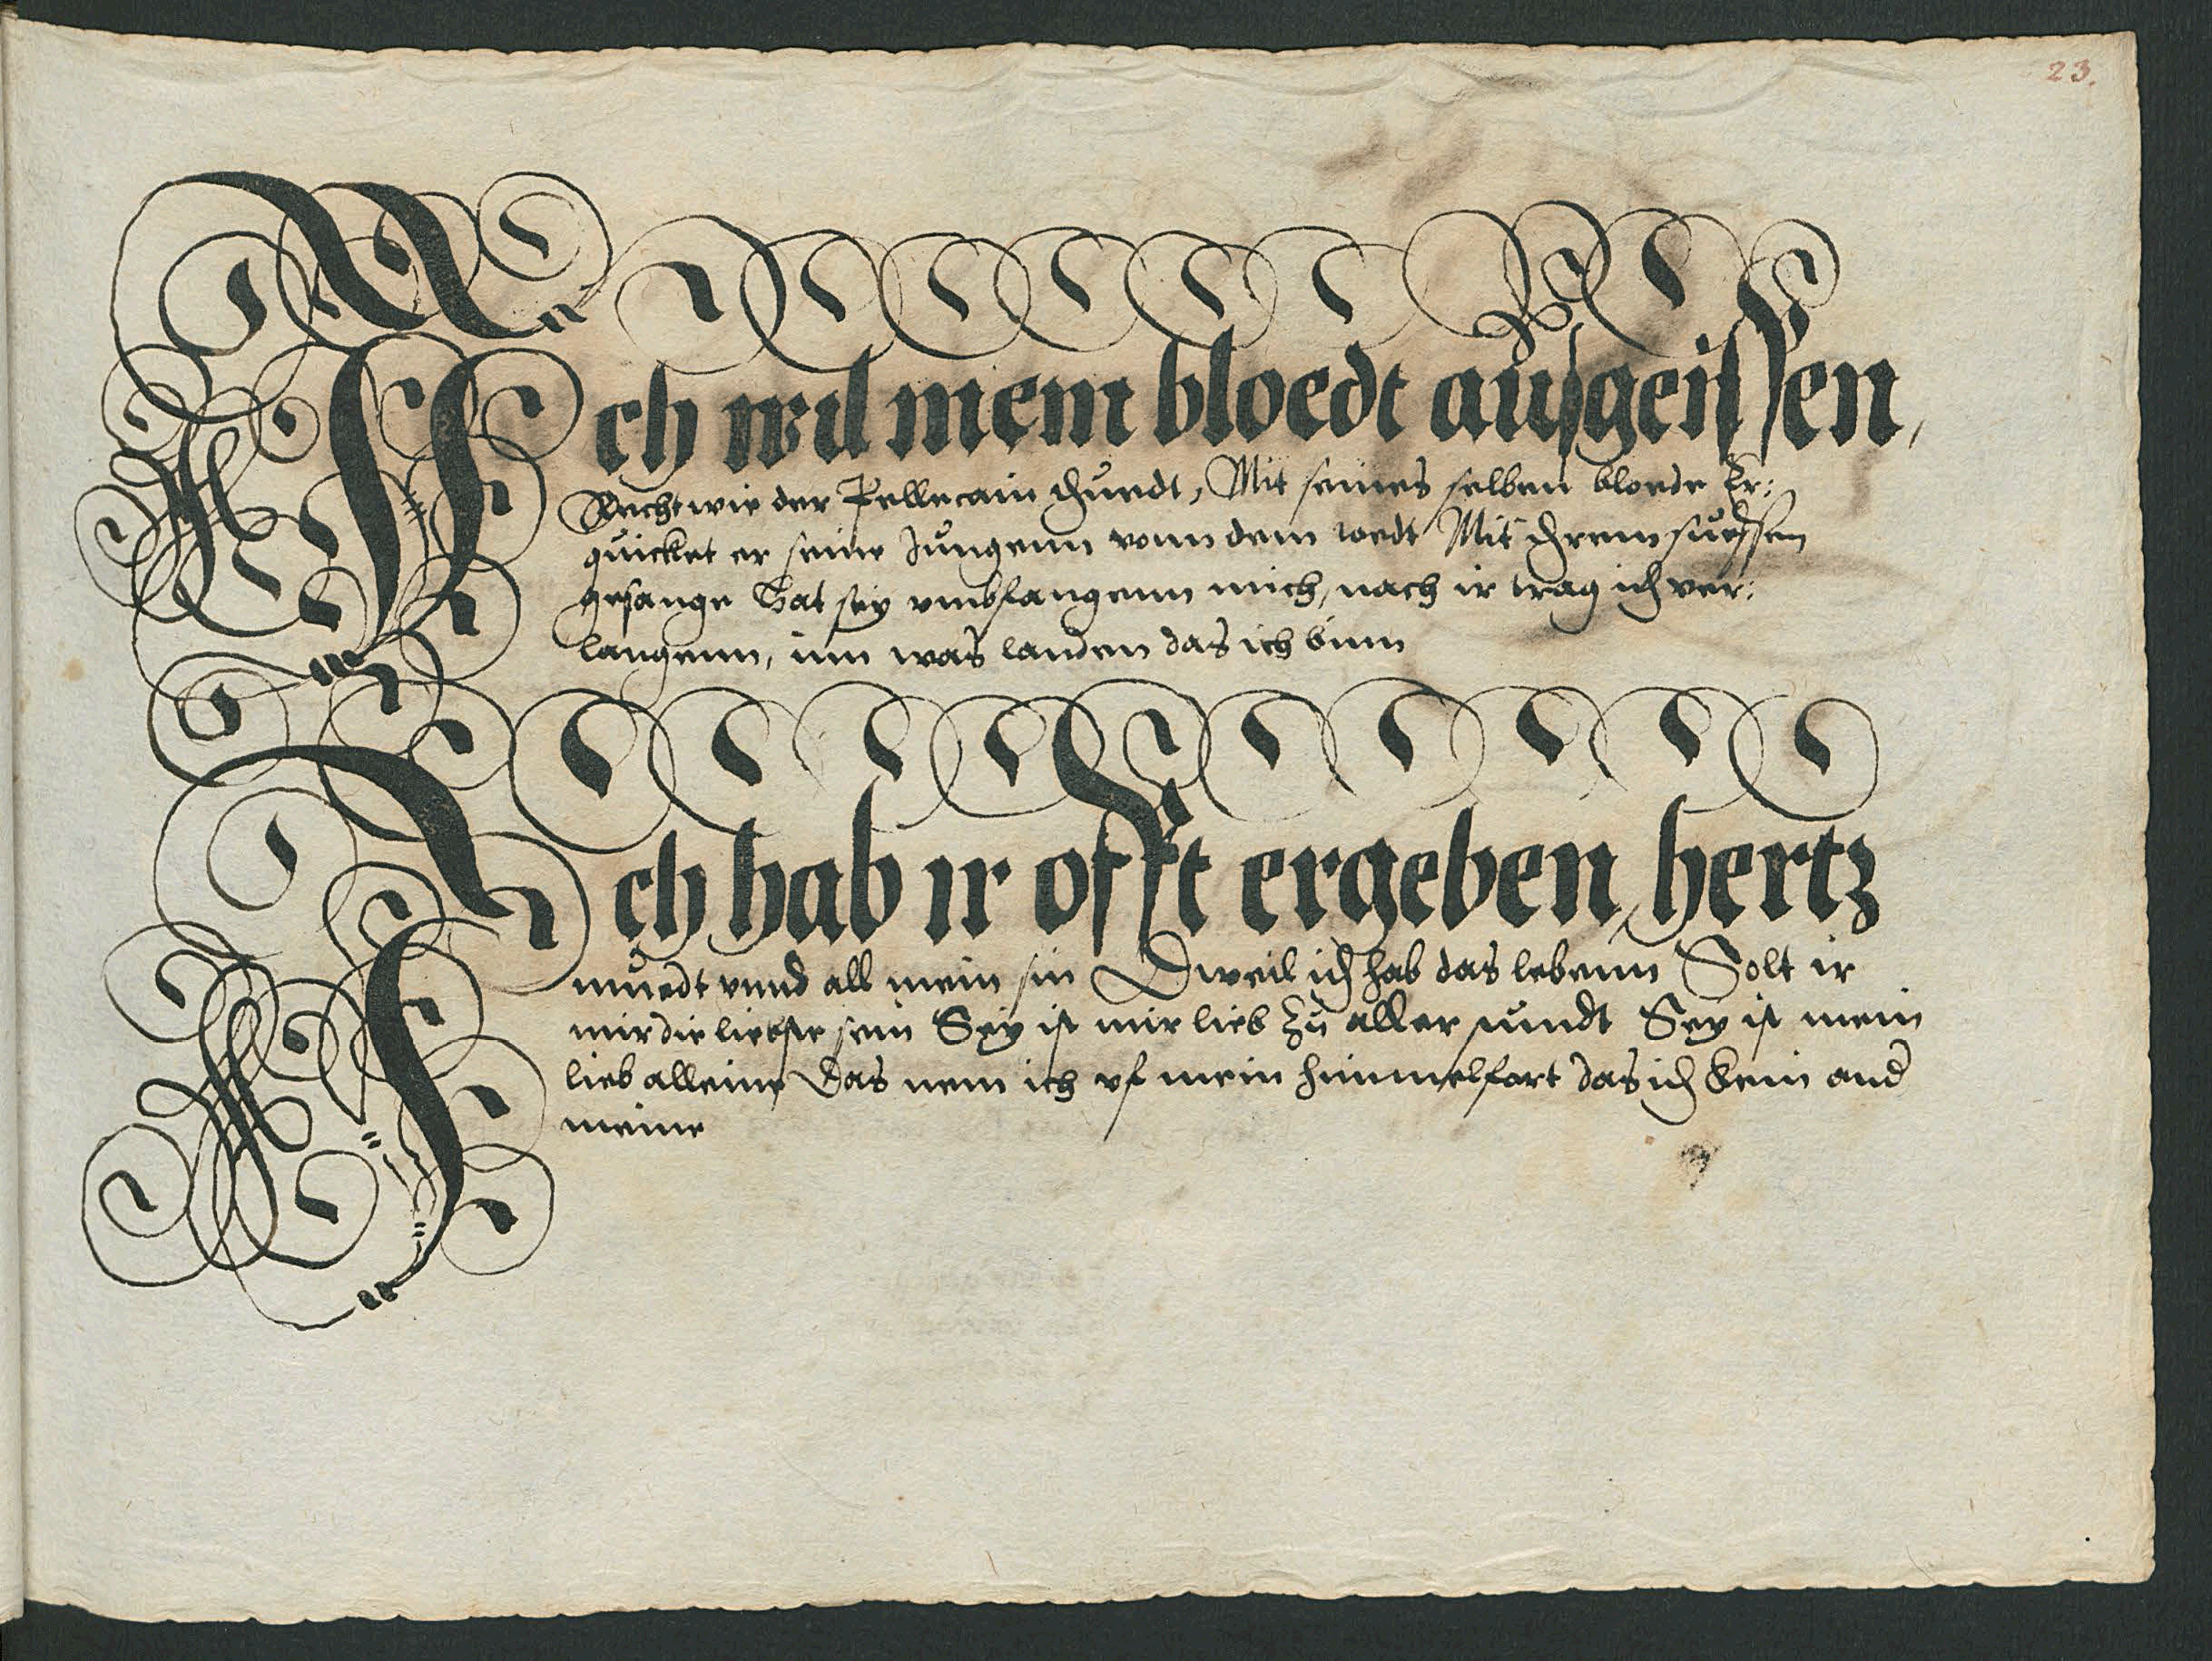 23.
Ich wil mein bloedt ausgeissen,
Recht wie der Pellecain thuedt, Mit seines selben bloede Er:
quicket er seine Jungenn vonn dem toedt Mit ihrem suessen
gesange Hat sey vmbfangenn mich, nach ir trag ich ver:
langenn, inn was landen das ich binn
Ich hab ir offt ergeben, hertz
muedt vnnd all mein sin Dweil ich hab das lebenn Solt ir
mir die liebste sein Sey ist mir lieb zu aller stundt Sey ist mein
lieb alleine Das nem ich vf mein himmelfart das ich kein and
meine